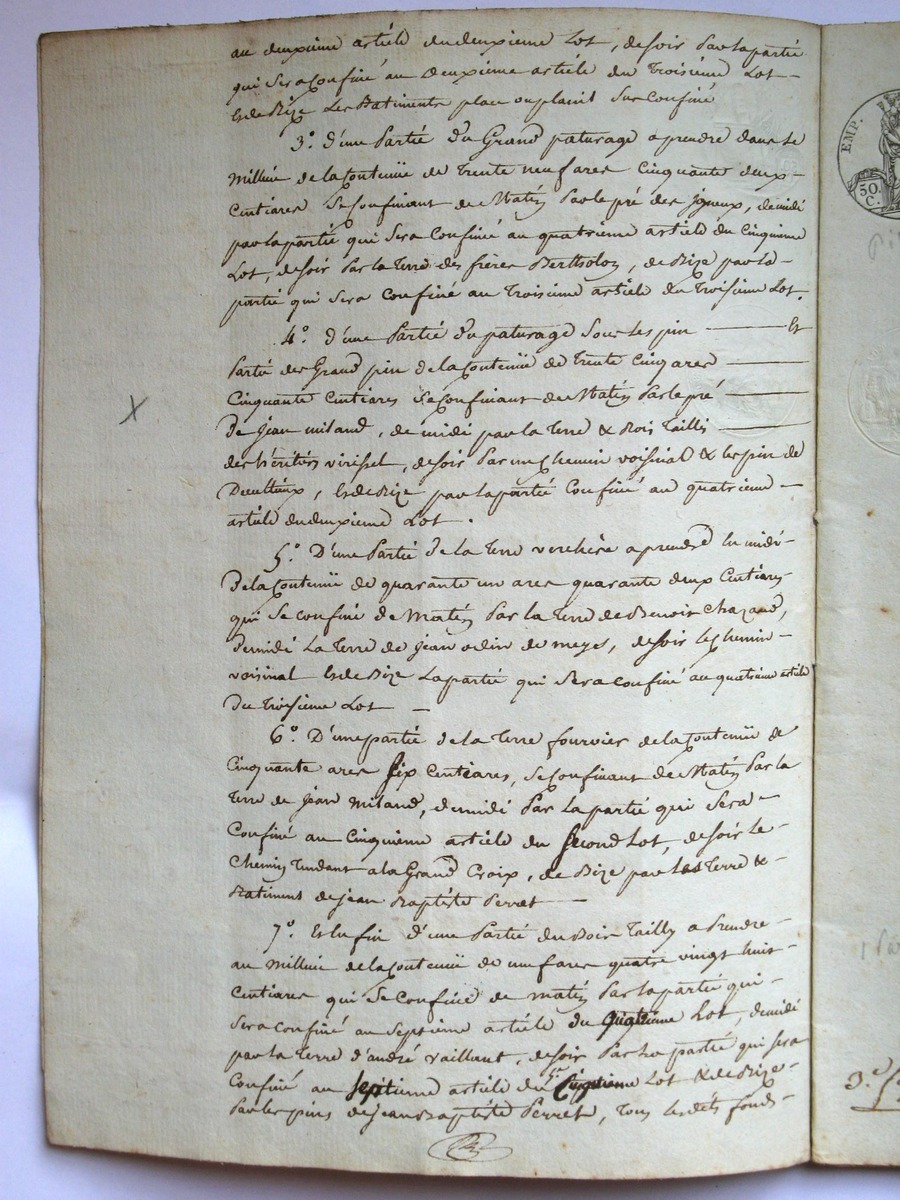 au deuxième article du deuxième Lot, de soir Par la partie
qui Sera Confiné au Deuxième article du Troisième Lot —
Et de Bize Les Batiments place ou plait Sus Confiné
3.° d'une Partie du Grand paturage a prendre dans le
Millieu de la Contenüe de Trente neuf ares Cinquante deux —
Centiares Se Confinant de Matin Par le pré des joyeux, de midi
par la partie qui Sera Confiné au quatrieme article du Cinquieme
Lot, de soir Par la Terre des frères Bertholon, de Bize par la —
partie qui Sera Confiné au Troisieme article du Troisieme Lot.
4.° d'une Partie du paturage Sous les pin — Et
Partie des Grand pin de la Contenüe de Trente Cinq ares —
Cinquante Centiares Se Confinant de Matin Par le pré —
De Jean miland, de midi par la Terre & Bois Tailli —
des héritiers virissel, de soir Par un Chemin voisinal & les pin de
Deulteux, Et de Bize par la partie Confiné au quatrieme —
article du deuxieme Lot.
5.° D'une Partie de la Terre verchère a prendre en midi —
De la Contenüe de quarante un ares quarante deux Centiares
qui Se Confine de Matin Par la Terre de Benoit Chazaud,
De midi La Terre de Jean odin de meys, de soir le Chemin —
voisinal Et de Bize La partie qui Sera Confiné au quatrieme article
Du Troisieme Lot —
6.° D'une partie de la Terre fournier de la Contenüe de
Cinquante ares Six Centiares, Se Confinant de Matin Par la
Terre de Jean Miland, de midi Par la partie qui Sera —
Confiné au Cinquieme article du Second Lot, de soir le —
Chemin Tendant a la Grand Croix, de Bize par les Terre & —
Batiment de jean Baptiste Perret —
7.° Et En fin d'une Partie du Bois Tailly a Prendre —
au Millieu de la Contenüe de neuf ares quatre vingt huit —
Centiares qui Se Confine de matin Par la partie qui —
Sera Confiné au Septieme article du quatrieme Lot, de midi
par la Terre d'andré vaillant, de soir Par la partie qui sera
Confiné au Septieme article du Cinquieme Lot & de Bize —
Par les pins de jean Baptiste Perret, Tous les dits fonds —
EMP.
50.
C.
3.e